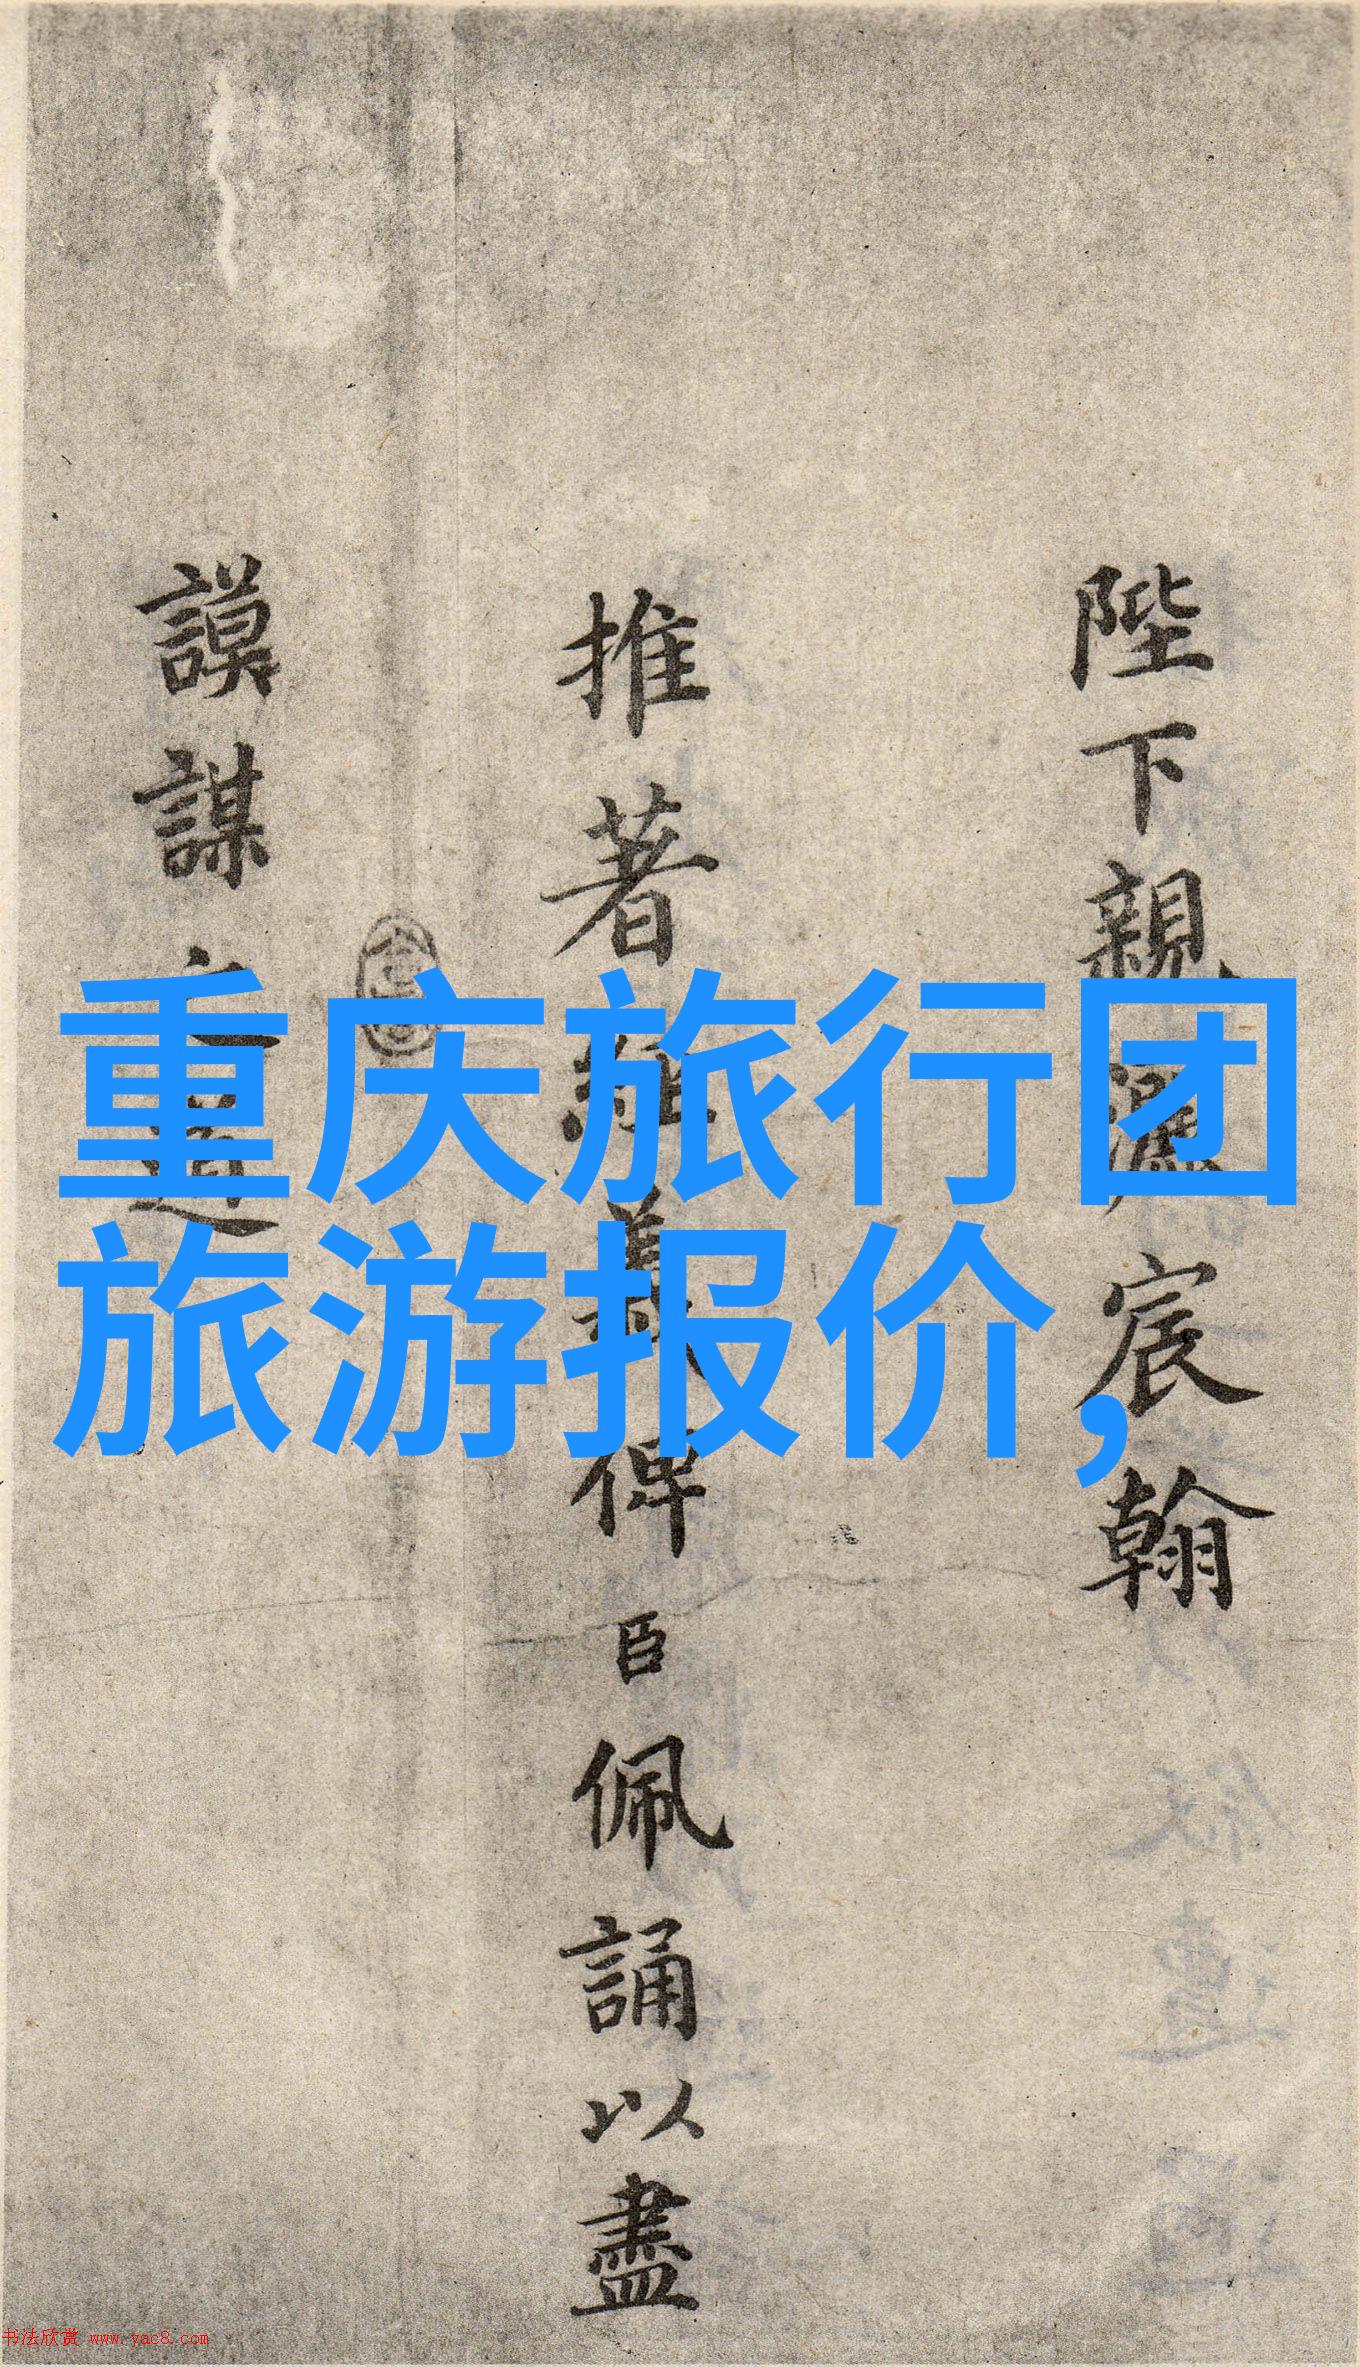 陛下親灑宸翰
推著經義俾臣佩誦以盡
謨謀之道
重庆旅行团
旅游报价,
书法欣赏 www.yac8.com